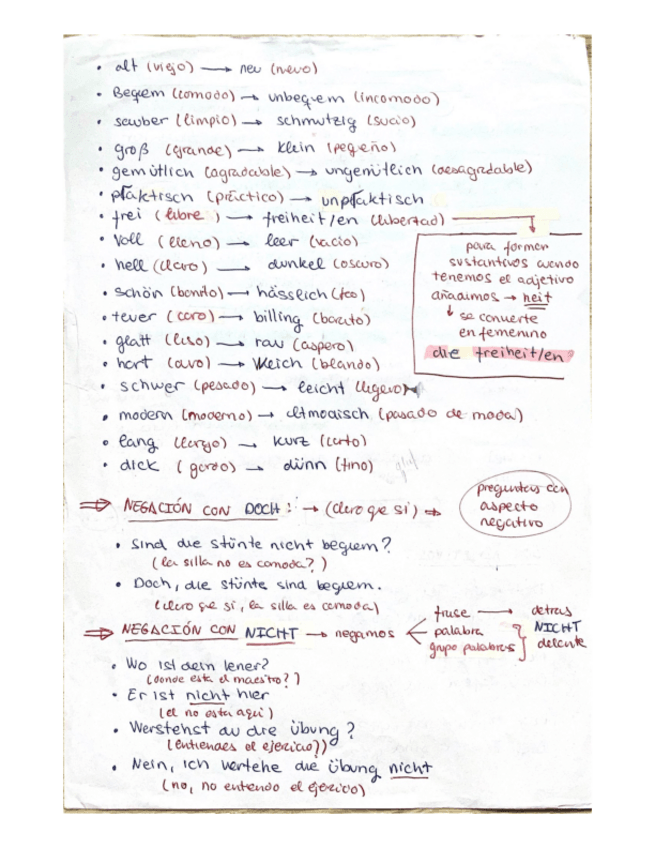 • alt (viejo) → neu (nuevo)
• Begem (comodo) → unbegem (incomodo)
• sauber (limpio) → schmutzig (sucio)
• groß (grande) → klein (pequeño)
• gemütlich (agradable) → ungemütlich (desagradable)
• plaktisch (práctico) → unplaktisch
• frei (libre) → freiheit/en (libertad)
• voll (lleno) → leer (vacio)
• hell (claro) → dunkel (oscuro)
• schön (bonito) → hässleich (feo)
• teuer (caro) → billing (barato)
• glatt (liso) → rau (aspero)
• hart (duro) → weich (blando)
• schwer (pesado) → leicht (ligero)
• modern (moderno) → altmodisch (pasado de moda)
• lang (largo) → kurz (corto)
• dick (gordo) → dünn (fino)
para formar
sustantivos cuando
tenemos el adjetivo
añadimos → heit
↓ se convierte
en femenino
die freiheit/en
⇒ NEGACIÓN CON DOCH: → (claro que si) ⇒
preguntas con
aspecto
negativo
• Sind die stünte nicht begiem?
(la silla no es comoda?)
• Doch, die stünte sind begiem.
(claro que si, la silla es comoda)
⇒ NEGACIÓN CON NICHT → negamos
frase → detras
palabra
grupo palabras
NICHT
delante
• Wo ist dein lener?
(donde esta el maestro?)
• Er ist nicht hier
(el no esta aqui)
• Werstehst du die Übung?
(entiendes el ejercicio?)
• Nein, ich vertehe die Übung nicht
(no, no entiendo el ejercicio)